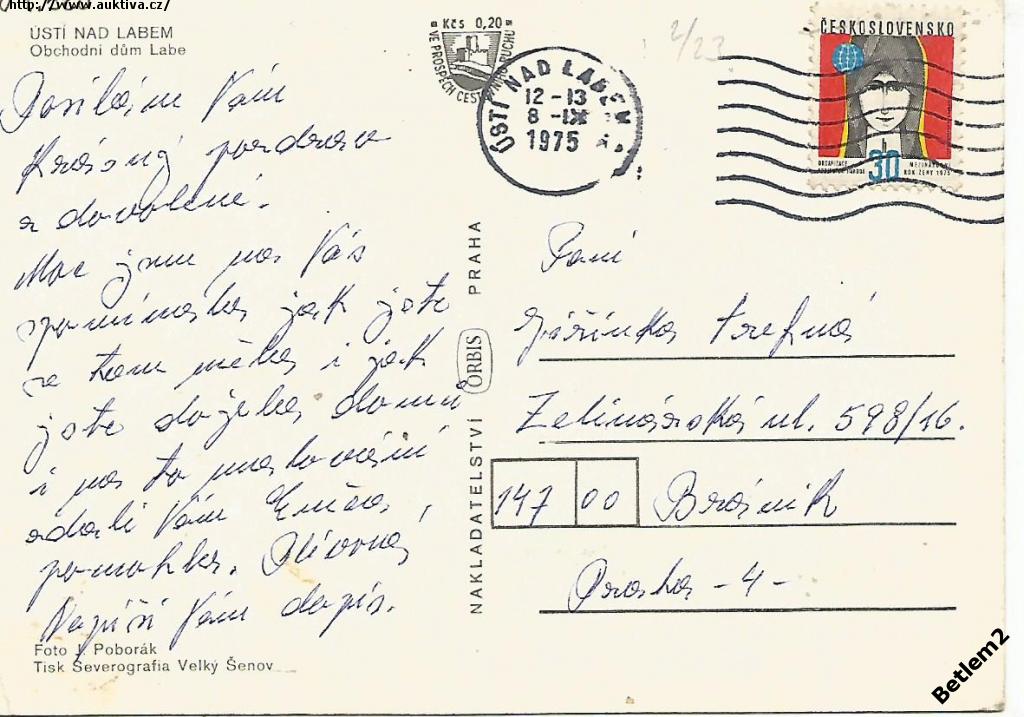 http://www.auktiva.cz/
ÚSTÍ NAD LABEM
Obchodní dům Labe
Posílám Vám
Krásný pozdrav
z dovolené.
Moc jsme na Vás
jak jste
se tam měla i jak
jste dojela domů
i na to malování
Vám
pomohla.
Napíši Vám dopis.
Foto J. Poborák
Tisk Severografia Velký Šenov
NAKLADATELSTVÍ ORBIS PRAHA
Kčs 0,20
VE PROSPĚCH CESTOVNÍHO RUCHU
ÚSTÍ NAD LABEM
12-13
8 -IX
1975
2/23
ČESKOSLOVENSKO
30
MEZINÁRODNÍ
ROK ŽENY 1975
Paní
Jiřinka Trefná
Zelinářská ul. 598/16.
147 00 Bráník
Praha -4-
Betlem2